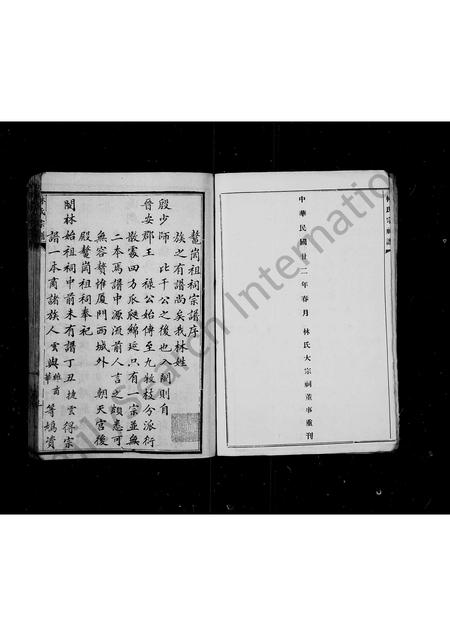 林氏宗祠譜
中華民國廿二年春月 林氏大宗祠董事重刊
鰲崗祖祠宗譜序
族之有譜尚矣我林姓
殷少師 比干公之後也入閩則自
晉安郡王 祿公始傳至九牧枝分派衍
散處四方瓜瓞綿延只有一宗並無
二本焉譜中源流前人言之頗悉可
無容贅惟厦門西城外 朝天宮後
殿鰲崗祖祠奉祀
閩林始祖祠中前未有譜丁丑 捷雲得宗
譜一床商諸族人雲與 等鳩資
Search International